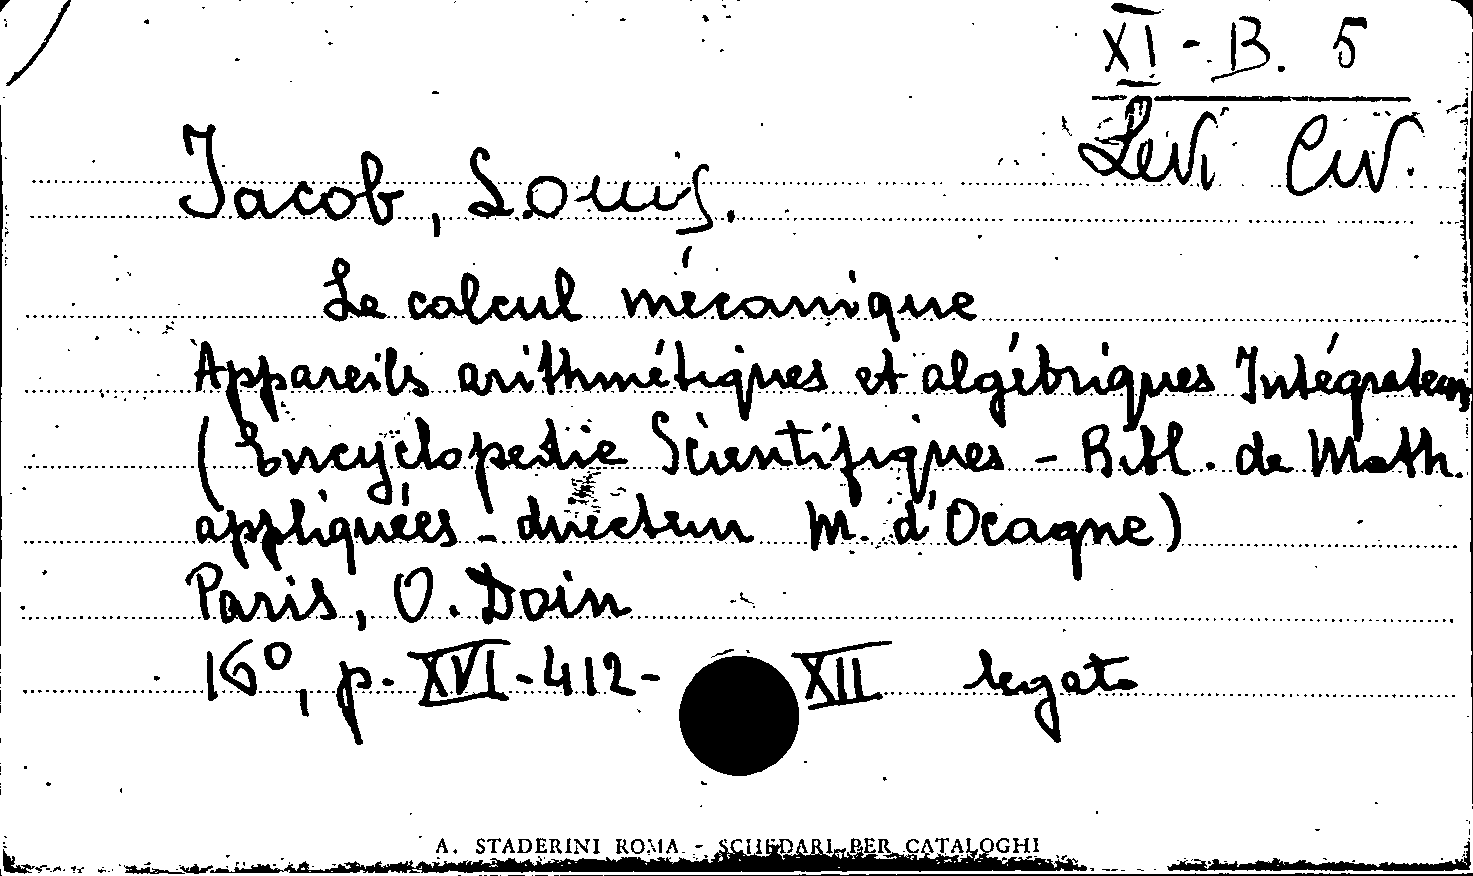 XI - B. 5
Levi Civ.
Jacob, Louis.
Le calcul mécanique
Appareils arithmétiques et algébriques Intégrateurs
(Encyclopedie Scientifiques - Bibl. de Math.
appliquées - directeur M. d'Ocagne)
Paris, O. Doin
16°, p. XVI-412- XII legato
A. STADERINI ROMA - SCHEDARI PER CATALOGHI